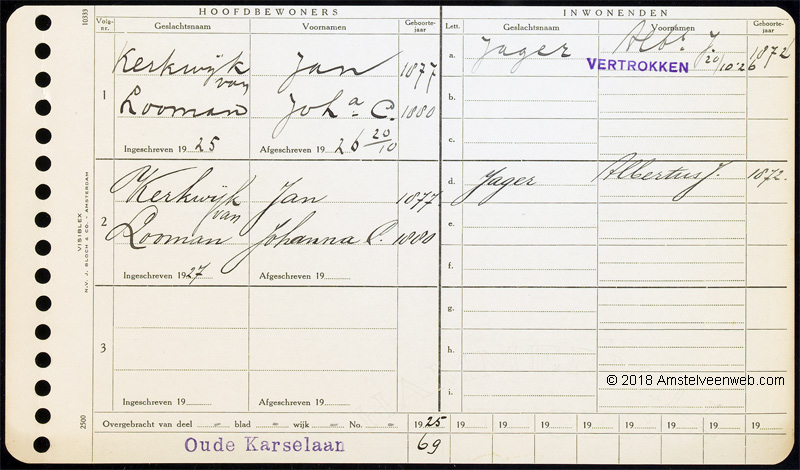 HOOFDBEWONERS
INWONENDEN
Volg-nr. Geslachtsnaam Voornamen Geboorte-jaar
Lett. Geslachtsnaam Voornamen Geboorte-jaar
1
Kerkwijk Jan 1877
van
Looman Joh.a C. 1880
Ingeschreven 1925 Afgeschreven 1926 20/10
a. Jager Alb.s J. 1872
VERTROKKEN 20/10'26
b.
c.
2
Kerkwijk Jan 1877
van
Looman Johanna C. 1880
Ingeschreven 1927 Afgeschreven 19
d. Jager Albertus J. 1872.
e.
f.
3
Ingeschreven 19 Afgeschreven 19
g.
h.
i.
Overgebracht van deel blad wijk No. 1925 19 19 19 19 19 19 19 19
Oude Karselaan 69
10333
VISIBLEX
N.V. J. BLOCH & CO. - AMSTERDAM
2500
© 2018 Amstelveenweb.com